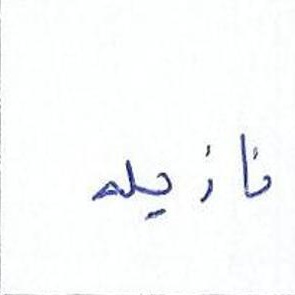 نازيله